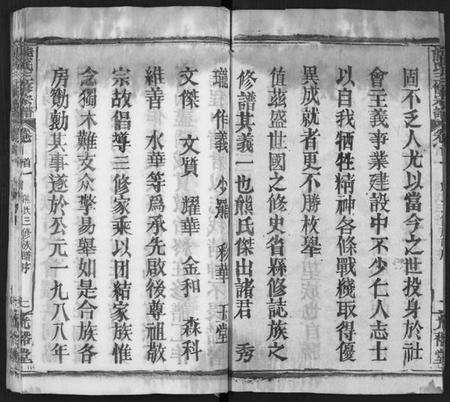 固不乏人尤以當今之世投身於社
會主義事業建設中不少仁人志士
以自我牺牲精神各條戰機取得優
異成就者更不勝枚舉
值兹盛世國之修史省縣修誌族之
修譜其義一也熊氏傑出諸君 秀
瓏 作義 少羆 彩華 玉堂
文傑 文質 耀華 金和 森科
維善 水華等爲承先啟後尊祖敬
宗故倡導三修家乘以团結家族惟
念獨木難支众擎易舉如是合族各
房勷勷其事遂於公元一九八八年